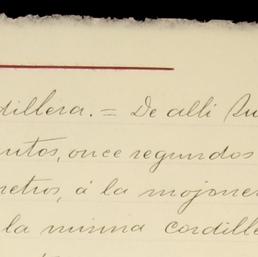 dillera. = De allí Su
utos, once segundos
etros, á la mojone
la misma cordille